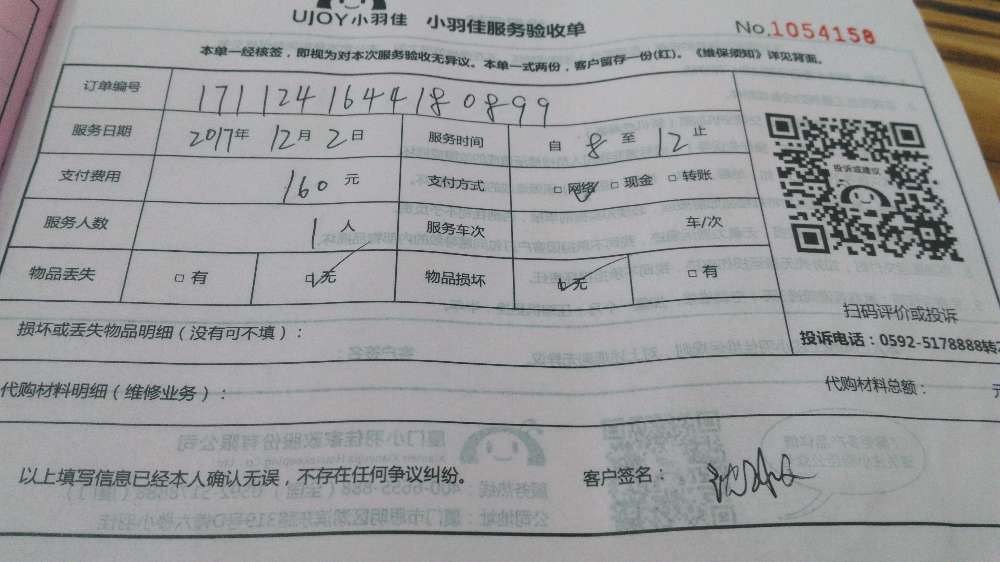 UJOY小羽佳 小羽佳服务验收单 No.1054158
本单一经核签，即视为对本次服务验收无异议。本单一式两份，客户留存一份(红)。《维保须知》详见背面。
订单编号 17112416441 80899
服务日期 2017年 12月 2日 服务时间 自 8 至 12 止
支付费用 160 元 支付方式 □网络 □现金 □转账
服务人数 1 人 服务车次 车/次
物品丢失 □有 □无 物品损坏 □无 □有
投诉或建议
扫码评价或投诉
损坏或丢失物品明细（没有可不填）：
投诉电话：0592-5178888转
代购材料明细（维修业务）： 代购材料总额： 元
以上填写信息已经本人确认无误，不存在任何争议纠纷。 客户签名：